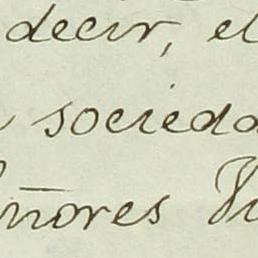 decir, el
socieda
ñores